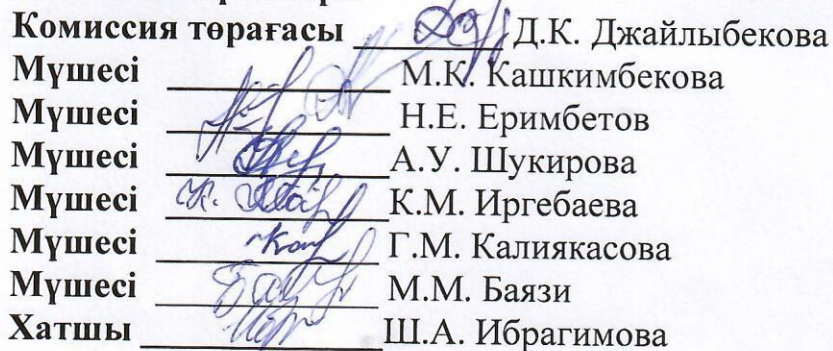 Комиссия төрағасы Д.К. Джайлыбекова
Мүшесі М.К. Кашкимбекова
Мүшесі Н.Е. Еримбетов
Мүшесі А.У. Шукирова
Мүшесі К.М. Иргебаева
Мүшесі Г.М. Калиякасова
Мүшесі М.М. Баязи
Хатшы Ш.А. Ибрагимова